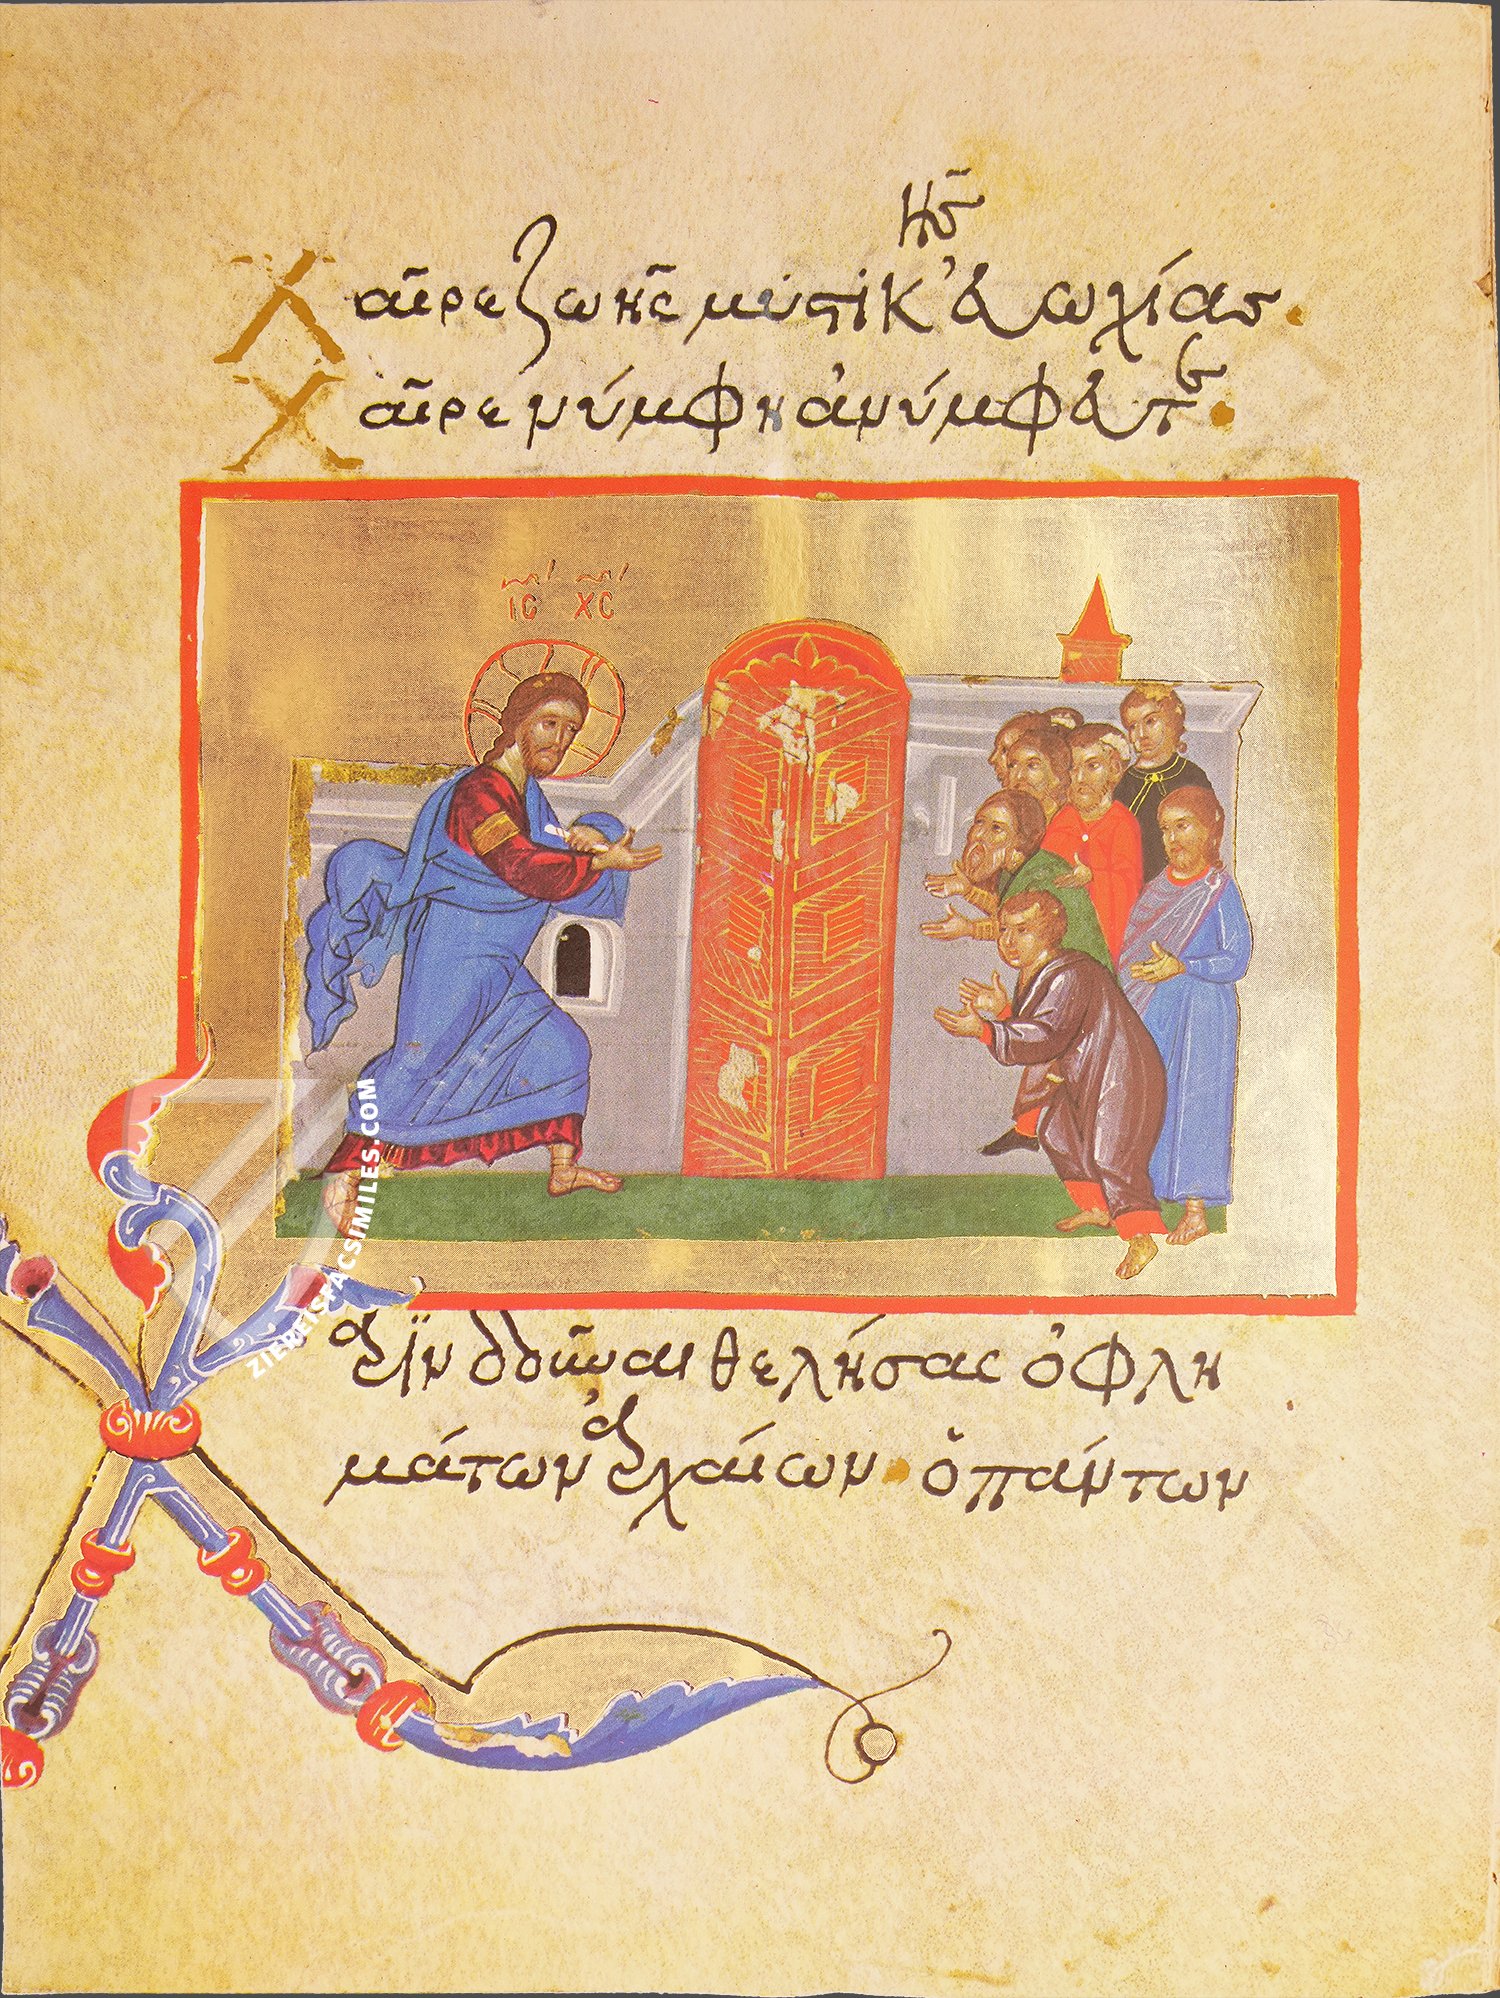 Χαῖρε ζωῆς μυστικῆς εὐωχίας.
Χαῖρε νύμφη ἀνύμφευτε.
ΙϹ ΧϹ
Χάριν δοῦναι θελήσας ὀφλη
μάτων ἀρχαίων· ὁ πάντων
ZIEREISFACSIMILES.COM